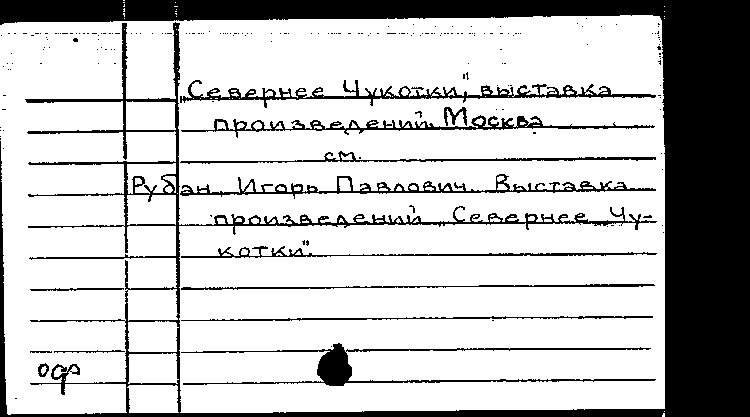 „Севернее Чукотки", выставка
произведений. Москва
см.
Рубан, Игорь Павлович. Выставка
произведений „Севернее Чу-
котки".